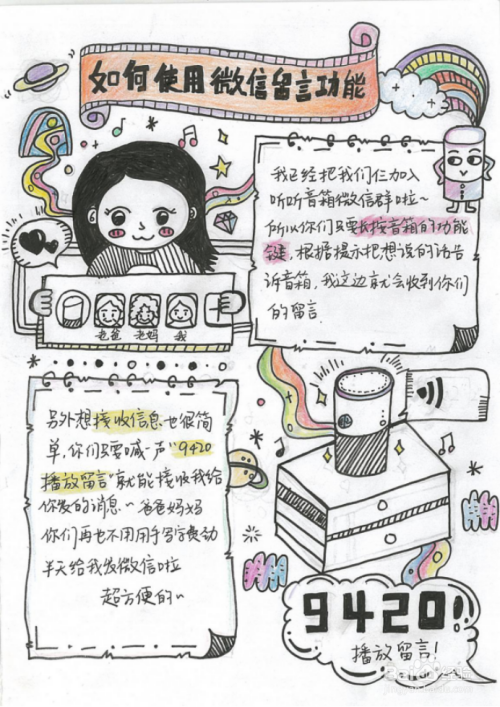 如何使用微信留言功能
我已经把我们仨加入
听听音箱微信群啦~
所以你们只要长按音箱的功能
键,根据提示把想说的话告
诉音箱,我这边就会收到你们
的留言.
老爸 老妈 我
另外想接收信息也很简
单,你们只要喊一声"9420
播放留言"就能接收我给
你发的消息~爸爸妈妈
你们再也不用用手写字费劲
半天给我发微信啦
超方便的~
9420!!
播放留言!